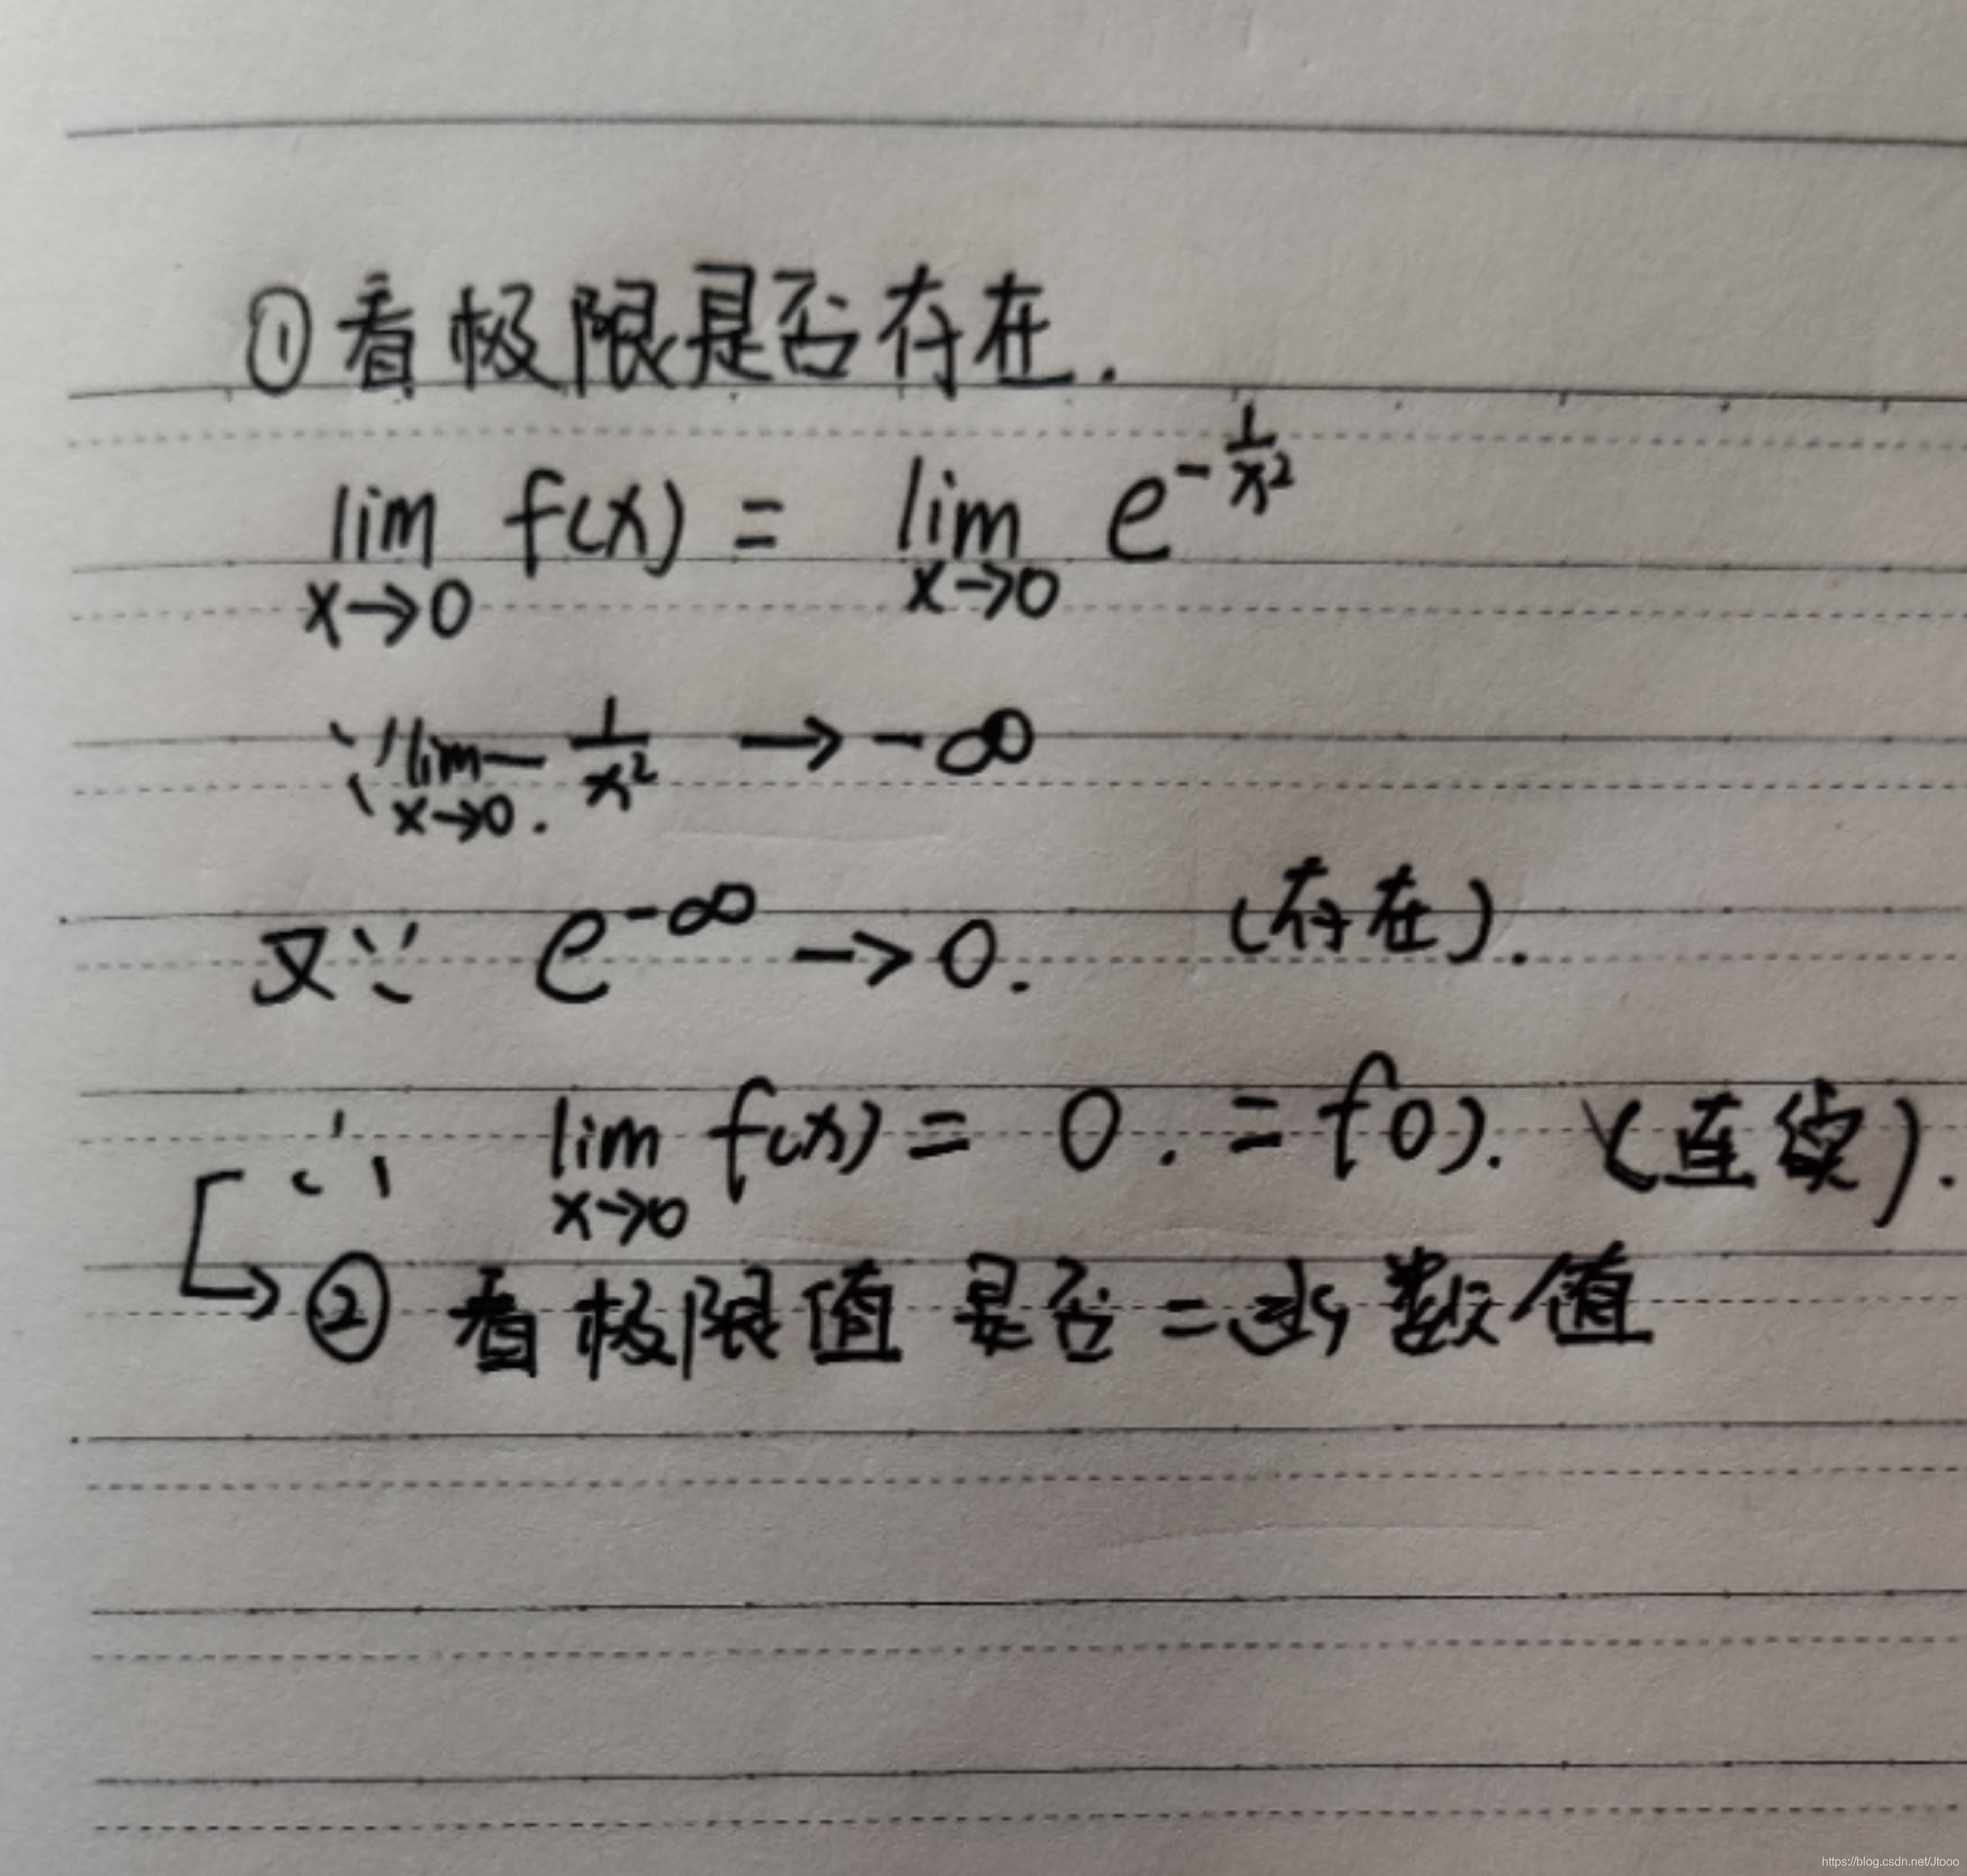 ①看极限是否存在.
lim x→0 f(x) = lim x→0 e^{-1/x²}
∵ lim x→0. -1/x² → -∞
又∵ e^{-∞} → 0. (存在).
∴ lim x→0 f(x) = 0. = f0). (连续).
② 看极限值是否=函数值
https://blog.csdn.net/Jtooo